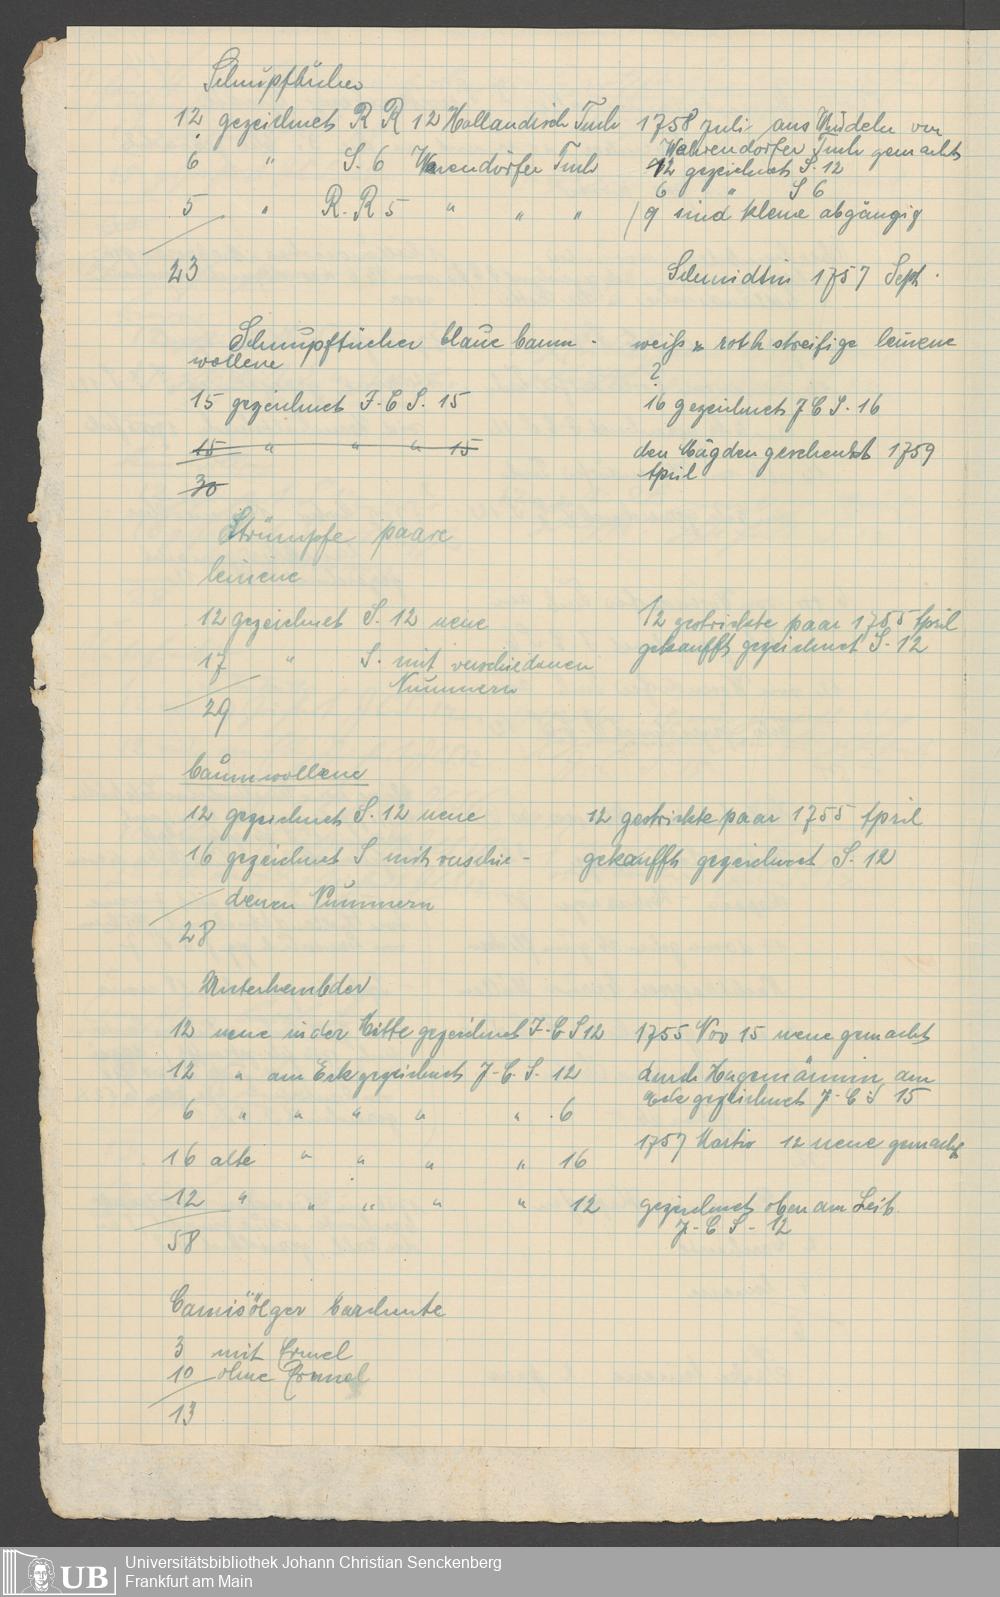 Schnupftücher
12 gezeichnet R R 12 Hollandisch Tuch
6 " S. 6 Warendörfer Tuch
5 " R. R 5 " " "
23
1758 Juli aus von
Wahrendorfer Tuch gemacht
12 gezeichnet S. 12
6 " S 6
/ 9 sind kleine abgängig
Schmidtin 1757 Sept.
Schnupftücher blaue baum-
wollene
15 gezeichnet J. C S. 15
15 " " " 15
30
weiß u roth streifige leinene
?
16 gezeichnet J C S. 16
den Mägden geschenkt 1759
April
Strümpfe paare
leinene
12 gezeichnet S. 12 neue
17 " S. mit verschiedenen
Nummern
29
12 gestrickte paar 1755 April
gekaufft gezeichnet S. 12
baumwollene
12 gezeichnet S. 12 neue
16 gezeichnet S mit verschie-
denen Nummern
28
12 gestrickte paar 1755 April
gekaufft gezeichnet S. 12
Unterhembder
12 neue in der Mitte gezeichnet J. C S 12
12 " am Eck gezeichnet J. C. S. 12
6 " " " " " . 6
16 alte " " " " 16
12 " " " " " 12
58
1755 Nov 15 neue gemacht
durch Hagemännin am
Ecke gezeichnet J. C S 15
1757 Martio 12 neue gemacht
gezeichnet oben am Leib
J. C S - 12
Camisölger barchente
3 mit Ermel
10 ohne Ermel
13
UB Universitätsbibliothek Johann Christian Senckenberg
Frankfurt am Main